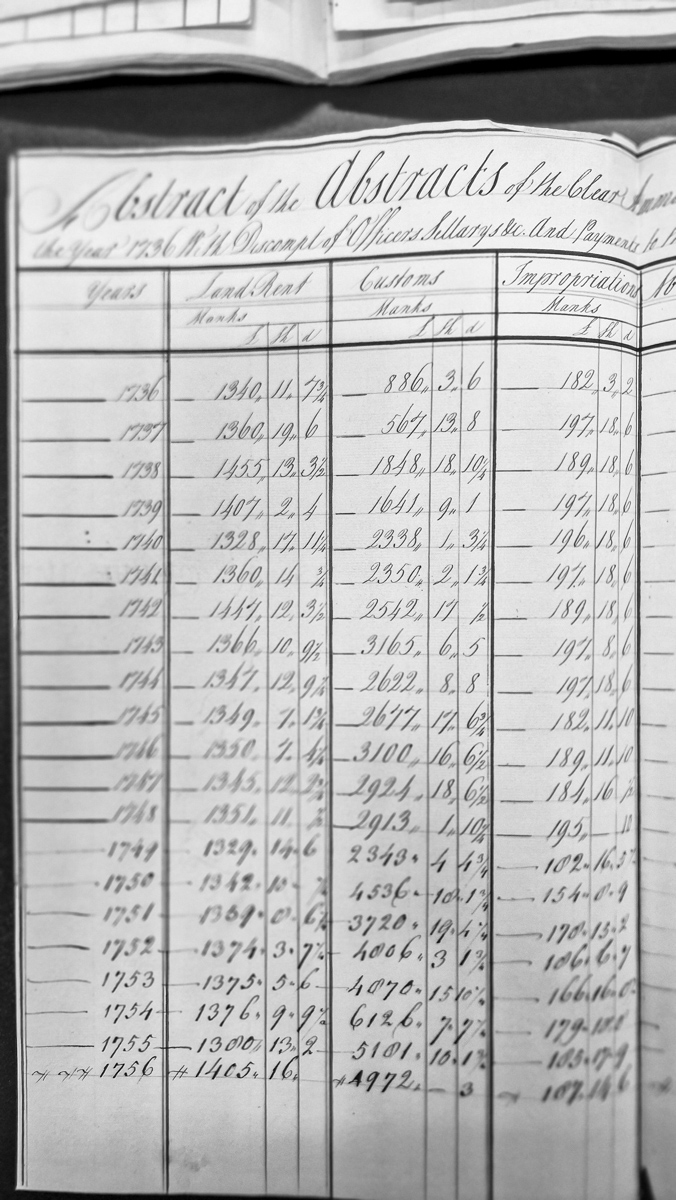 Abstract of the Abstracts of the Clear
the Year 1736 With Discompt of Officers Sallarys &c. And Payments
Years Land Rent Customs Impropriations
Manks Manks Manks
£ Sh d £ Sh d £ Sh d
1736 1340,, 11,, 7¾ 886,, 3,, 6 182,, 3,, 2
1737 1360,, 19,, 6 567,, 13,, 8 197,, 18,, 6
1738 1455,, 13,, 3½ 1848,, 18,, 10¼ 189,, 18,, 6
1739 1407,, 2,, 4 1641,, 9,, 1 197,, 18,, 6
1740 1328,, 17,, 11¼ 2338,, 1,, 3¼ 196,, 18,, 6
1741 1360,, 14 ¾ 2350,, 2,, 1¾ 197,, 18,, 6
1742 1447,, 12,, 3½ 2542,, 17 ½ 189,, 18,, 6
1743 1366,, 10,, 9½ 3165,, 6,, 5 197,, 8,, 6
1744 1347,, 12,, 9¼ 2622,, 8,, 8 197,, 18,, 6
1745 1349,, 7,, 1¾ 2677,, 17,, 6¾ 182,, 11,, 10
1746 1350,, 7,, 4¼ 3100,, 16,, 6½ 189,, 11,, 10
1747 1345,, 12 2¾ 2924,, 18,, 6½ 184,, 16 ½
1748 1351,, 11,, 2913,, 1,, 10¾ 195,, — 10
1749 1329,, 14,, 6 2343,, 4 4¾ 182,, 16,,
1750 1342,, 10 4536,, 18,, 1¾ 154,, 8,, 9
1751 1359,, 8,, 3720,, 19,, 178,, 15,, 2
1752 1374,, 3,, 7½ 4006,, 3 1¾ 186,, 6,, 7
1753 1375,, 5,, 6 4070,, 15 166,, 16,,
1754 1376,, 9,, 9½ 6126,, 7,, 7½ 179,,
1755 1380,, 13,, 2 5181,, 10,, 183,, 17,, 9
1756 1405,, 16,, 4972,, — 3 187,, 14,, 6